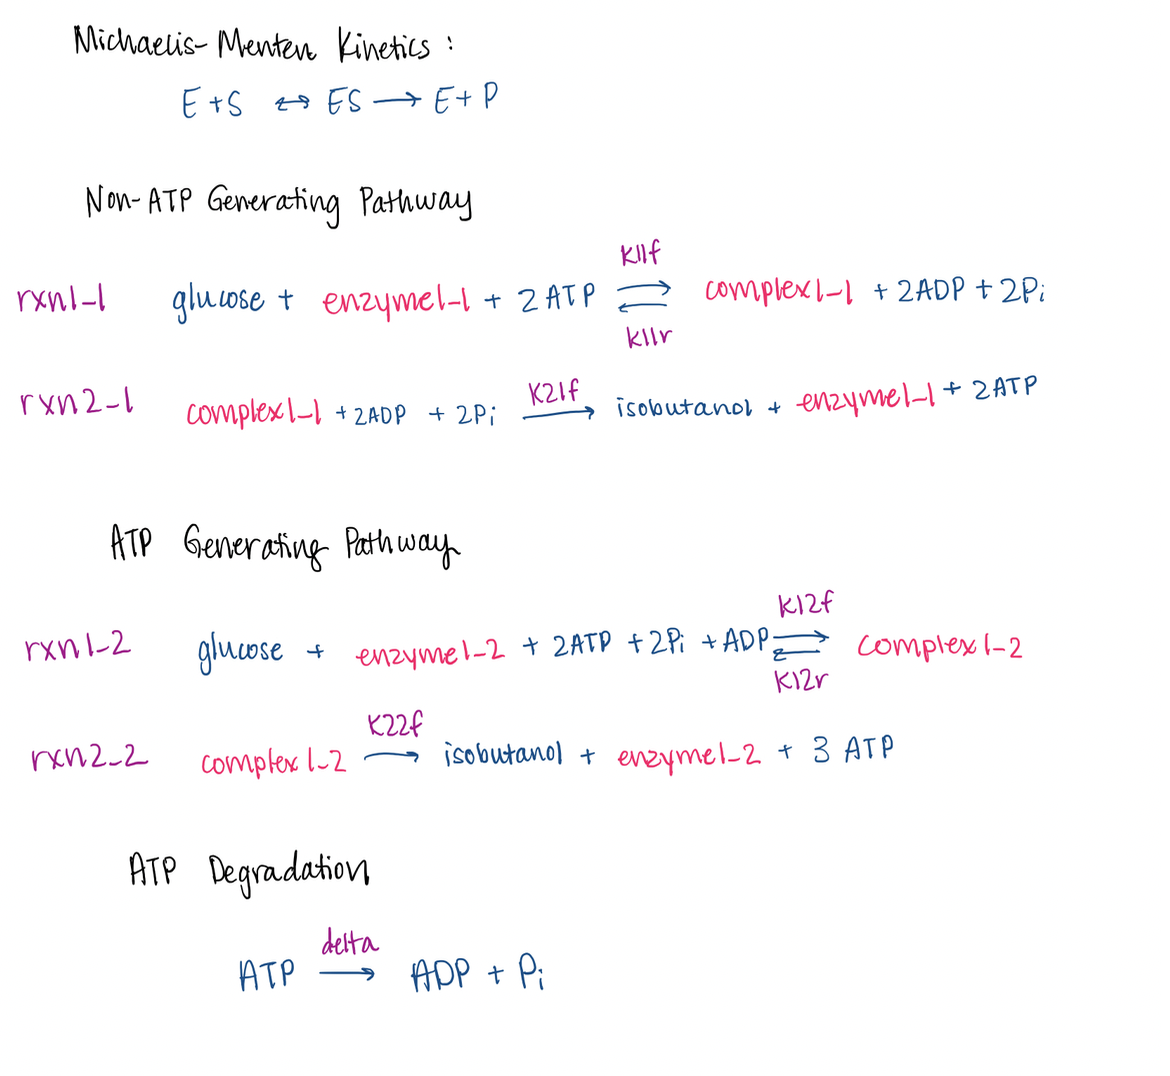 Michaelis-Menten Kinetics :
E + S ↔ ES → E + P
Non-ATP Generating Pathway
k11f
rxn1-1 glucose + enzyme1-1 + 2 ATP ⇌ complex1-1 + 2ADP + 2Pi
k11r
k21f
rxn2-1 complex1-1 + 2ADP + 2Pi → isobutanol + enzyme1-1 + 2ATP
ATP Generating Pathway
k12f
rxn1-2 glucose + enzyme1-2 + 2ATP + 2Pi + ADP ⇌ complex1-2
k12r
k22f
rxn2-2 complex1-2 → isobutanol + enzyme1-2 + 3 ATP
ATP Degradation
delta
ATP → ADP + Pi